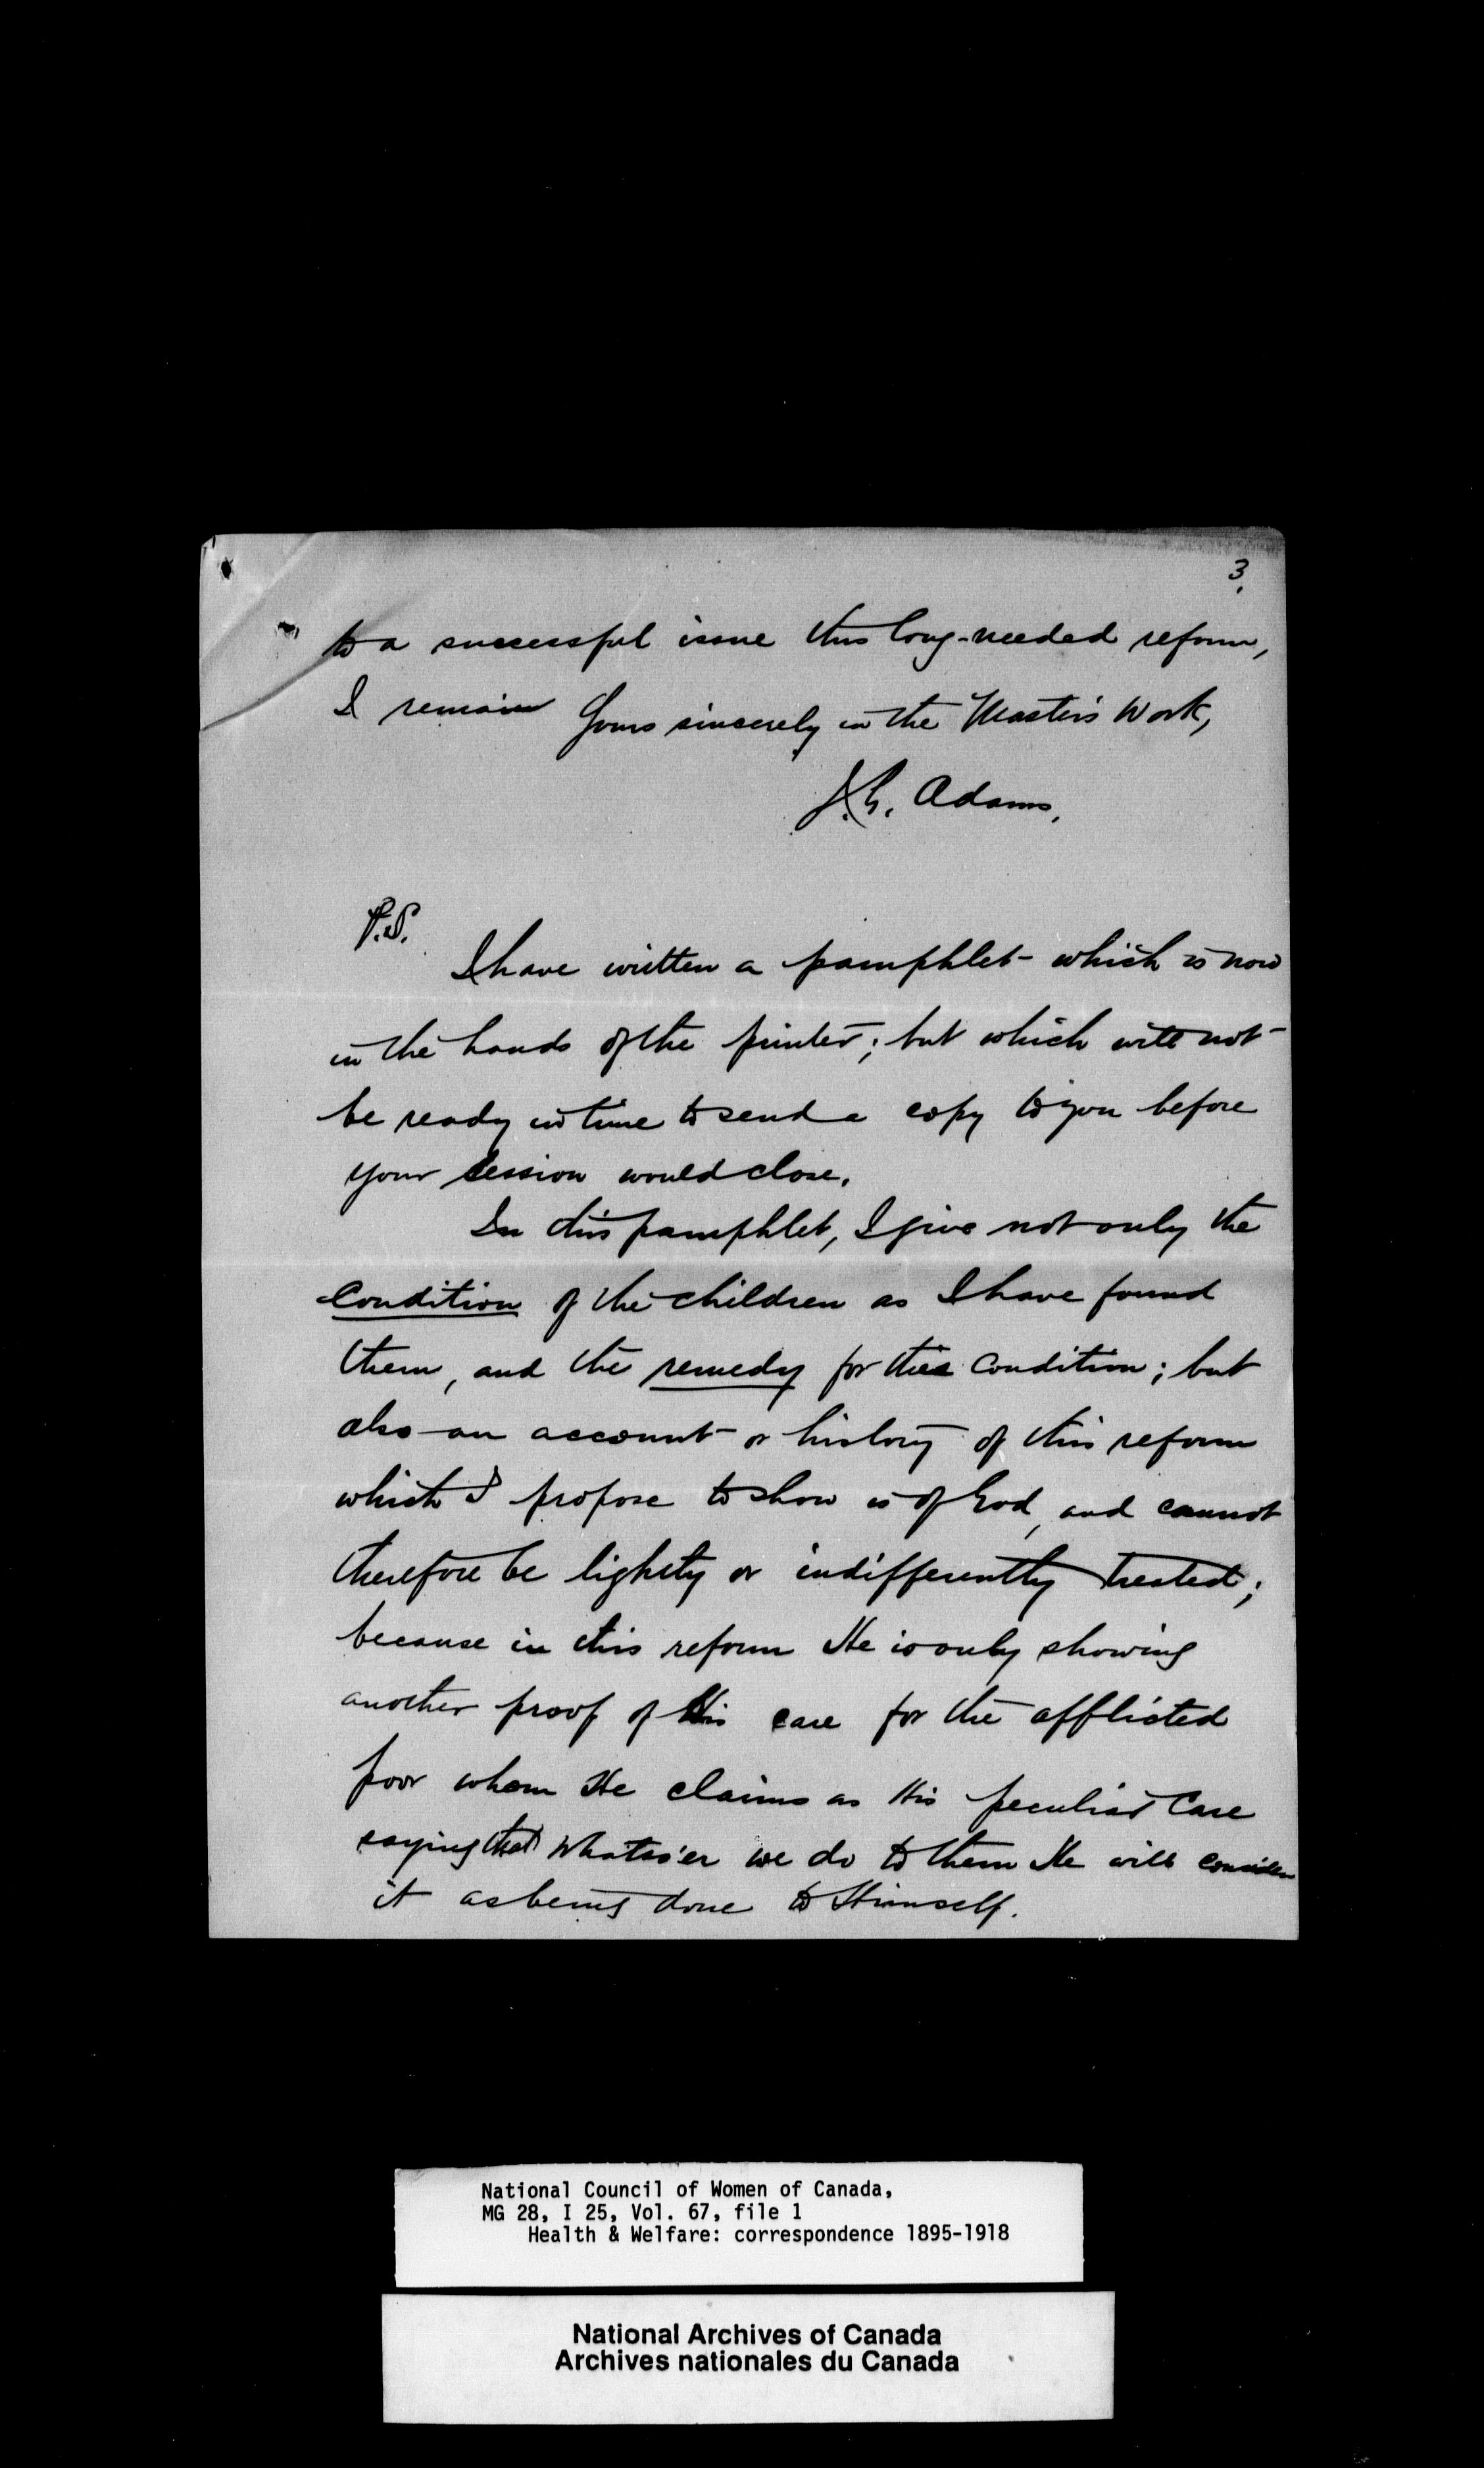 3.
to a successful issue this long-needed reform,
I remain Yours sincerely in the Master's Work,
J.G. Adams,
P.S.
I have written a pamphlet which is now
in the hands of the printer; but which will not
be ready in time to send a copy to you before
your session would close.
In this pamphlet, I give not only the
condition of the children as I have found
them, and the remedy for this condition; but
also an account or history of this reform
which I propose to show is of God, and cannot
therefore be lightly or indifferently treated;
because in this reform He is only showing
another proof of His care for the afflicted
poor whom He claims as His peculiar care
saying that whatso'er we do to them He will consider
it as being done to Himself.
National Council of Women of Canada,
MG 28, I 25, Vol. 67, file 1
Health & Welfare: correspondence 1895-1918
National Archives of Canada
Archives nationales du Canada